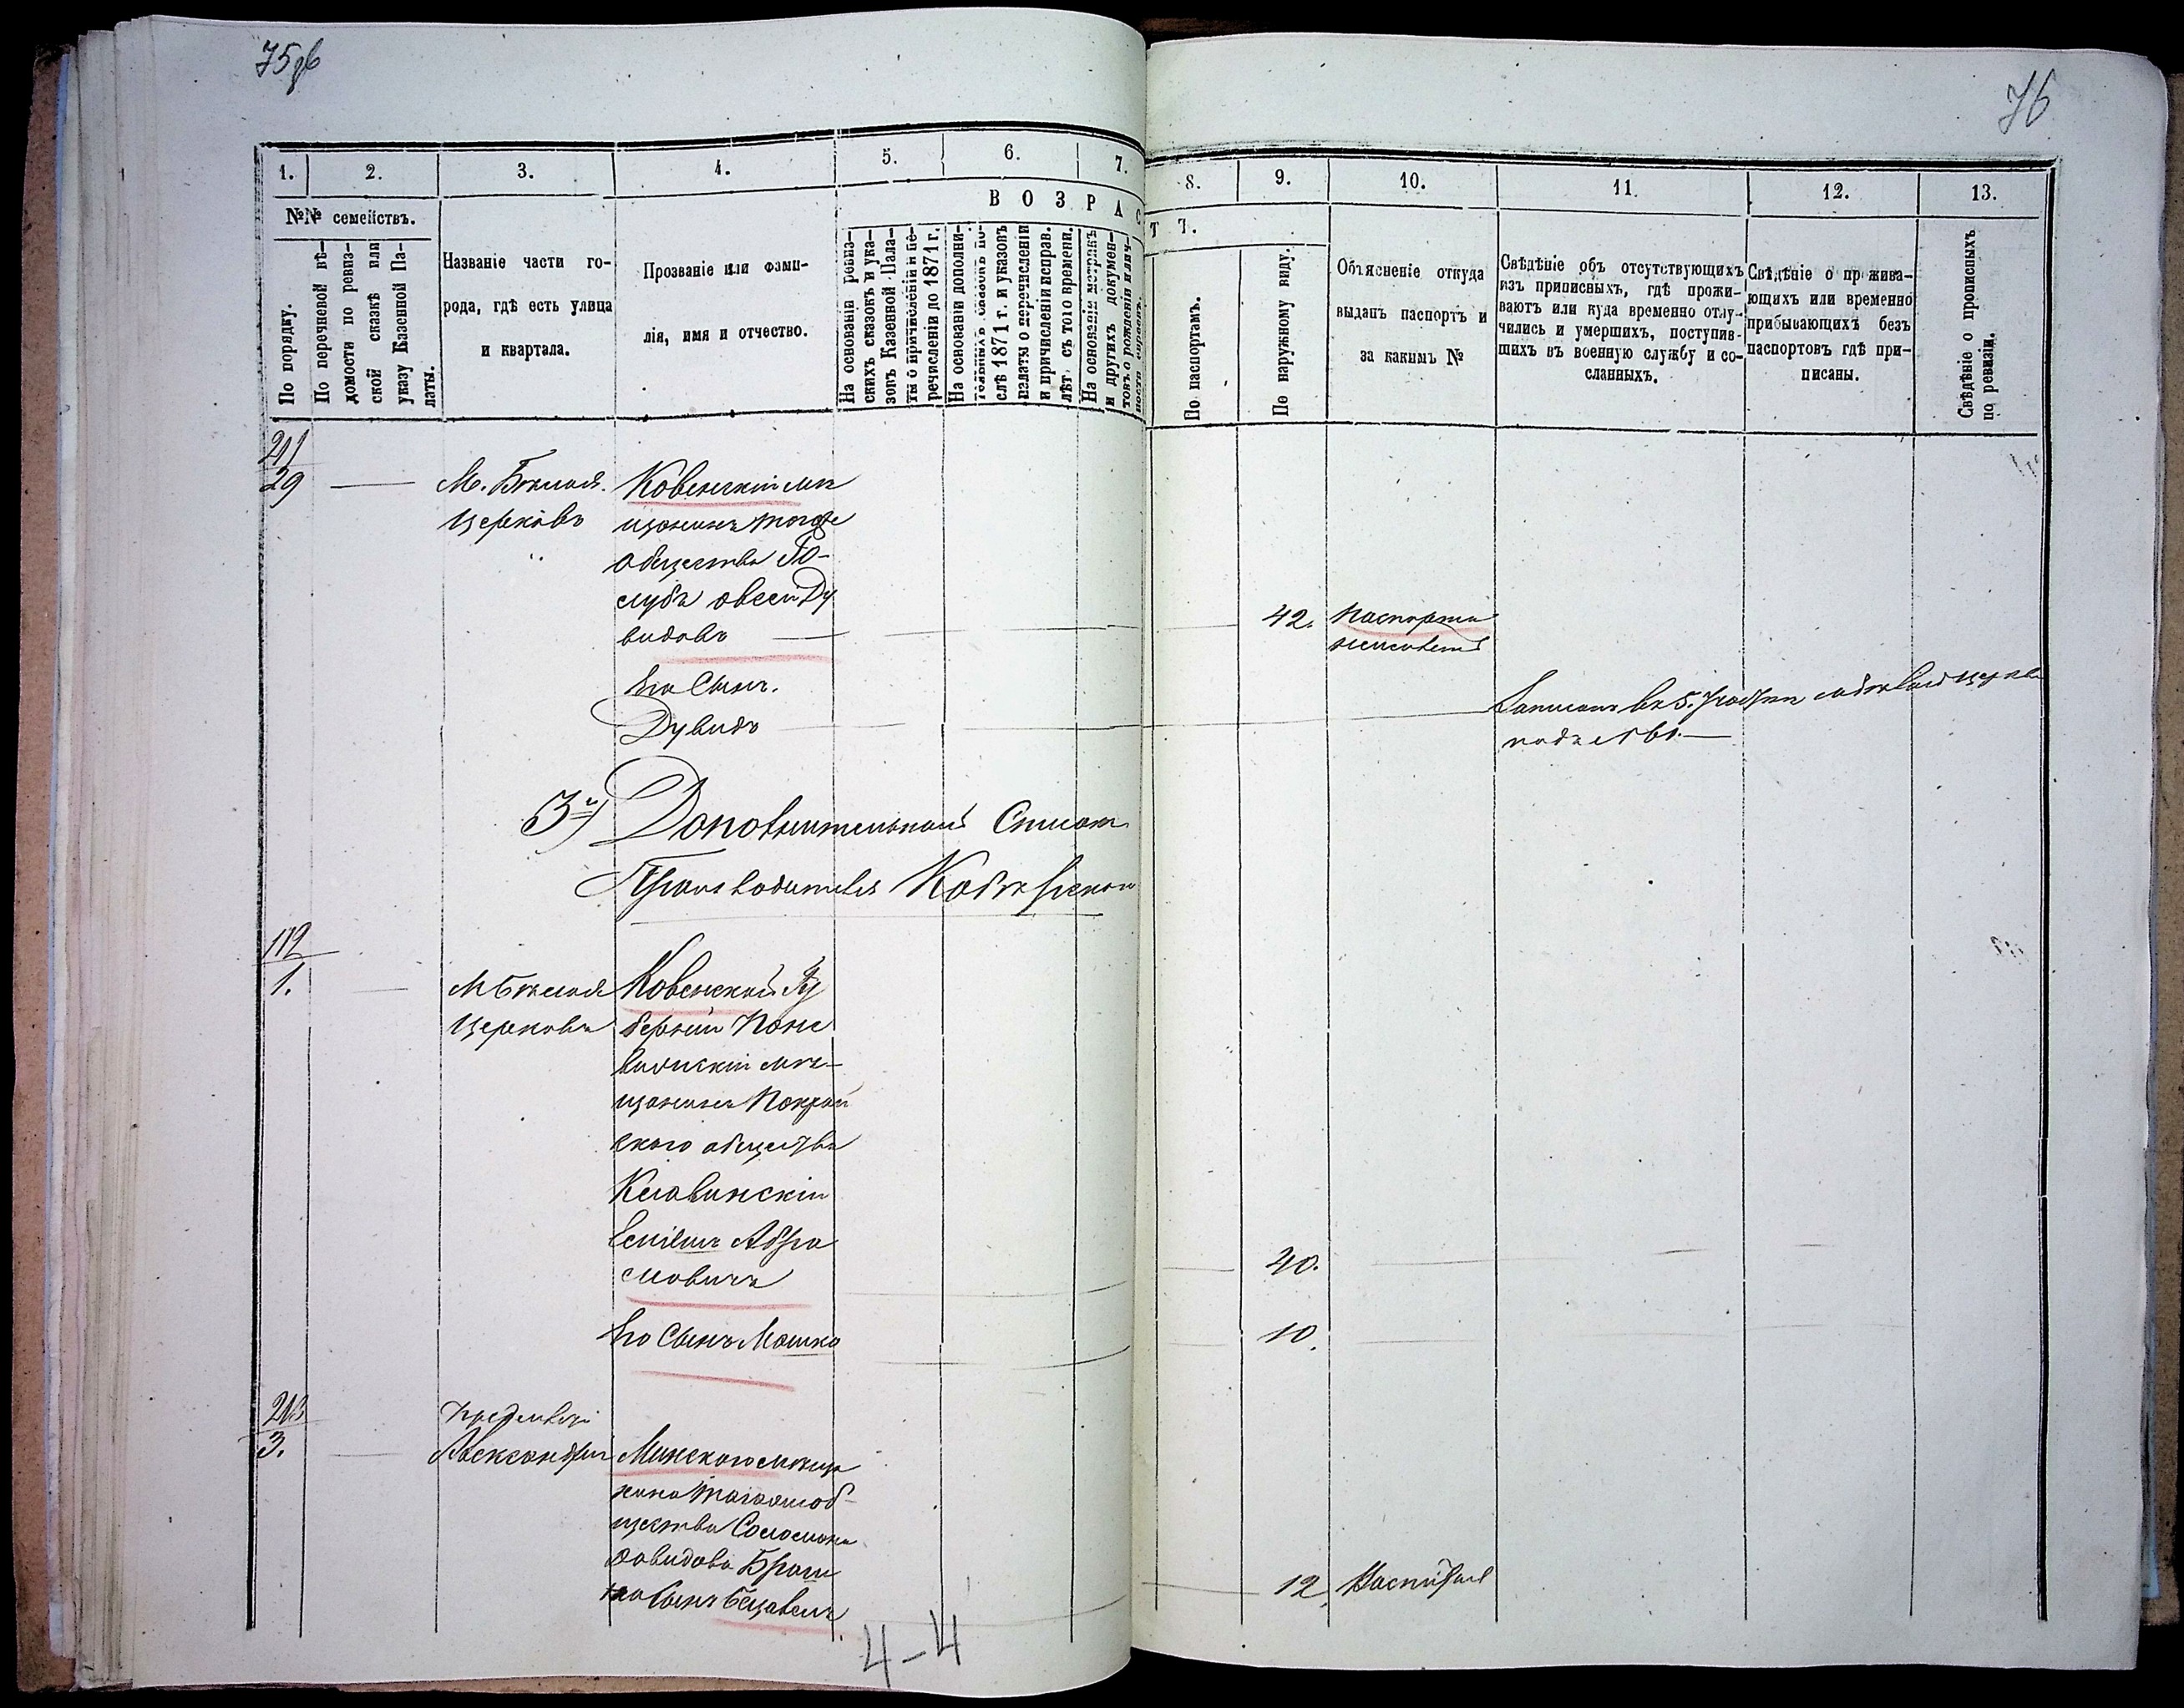 75об
76
1. 2. 3. 4. 5. 6. 7. 8. 9. 10. 11. 12. 13.
ВОЗРАСТЪ.
№№ семействъ.
По порядку.
По перечневой вѣ-
домости по ревиз-
ской сказкѣ или
указу Казенной Па-
латы.
Названіе части го-
рода, гдѣ есть улица
и квартала.
Прозваніе или фами-
лія, имя и отчество.
На основаніи ревиз-
скихъ сказокъ и ука-
зовъ Казенной Пала-
ты о причисленіи и пе-
речисленіи до 1871 г.
На основаніи дополни-
тельныхъ сказокъ по-
слѣ 1871 г. и указовъ
палаты о перечисленіи
и причисленіи исправ.
лѣт. съ того времени.
На основаніи метрикъ
и другихъ докумен-
товъ о рожденіи и лич-
ности евреевъ.
По паспортамъ.
По наружному виду.
Объясненіе откуда
выданъ паспортъ и
за какимъ №
Свѣдѣніе объ отсутствующихъ
изъ приписныхъ, гдѣ прожи-
ваютъ или куда временно отлу-
чились и умершихъ, поступив-
шихъ въ военную службу и со-
сланныхъ.
Свѣдѣніе о прожива-
ющихъ или временно
прибывающихъ безъ
паспортовъ гдѣ при-
писаны.
Свѣдѣніе о прописныхъ
по ревизіи.
29 — М. Бѣлая Ковенскій мѣ
Церковь щанинъ того же
общества Го-
лубъ Овсей Ду
видовъ — 42. Паспорта
неимѣетъ
Его Сынъ.
Дувидъ Записанъ въ 5.
подъ №
3й) Дополнительный Списокъ
Производителя
1. — М Бѣлая Ковенской Гу
Церковь берніи Поне
вѣжскій мѣ-
щанинъ
ского общества
Клавинскій
Абра
мовичъ 40.
Его Сынъ Мошко 10.
213
3. — Александрія Минскаго мѣща
нина того же об-
щества Соломона
Давидова
Сынъ 12.
4-4